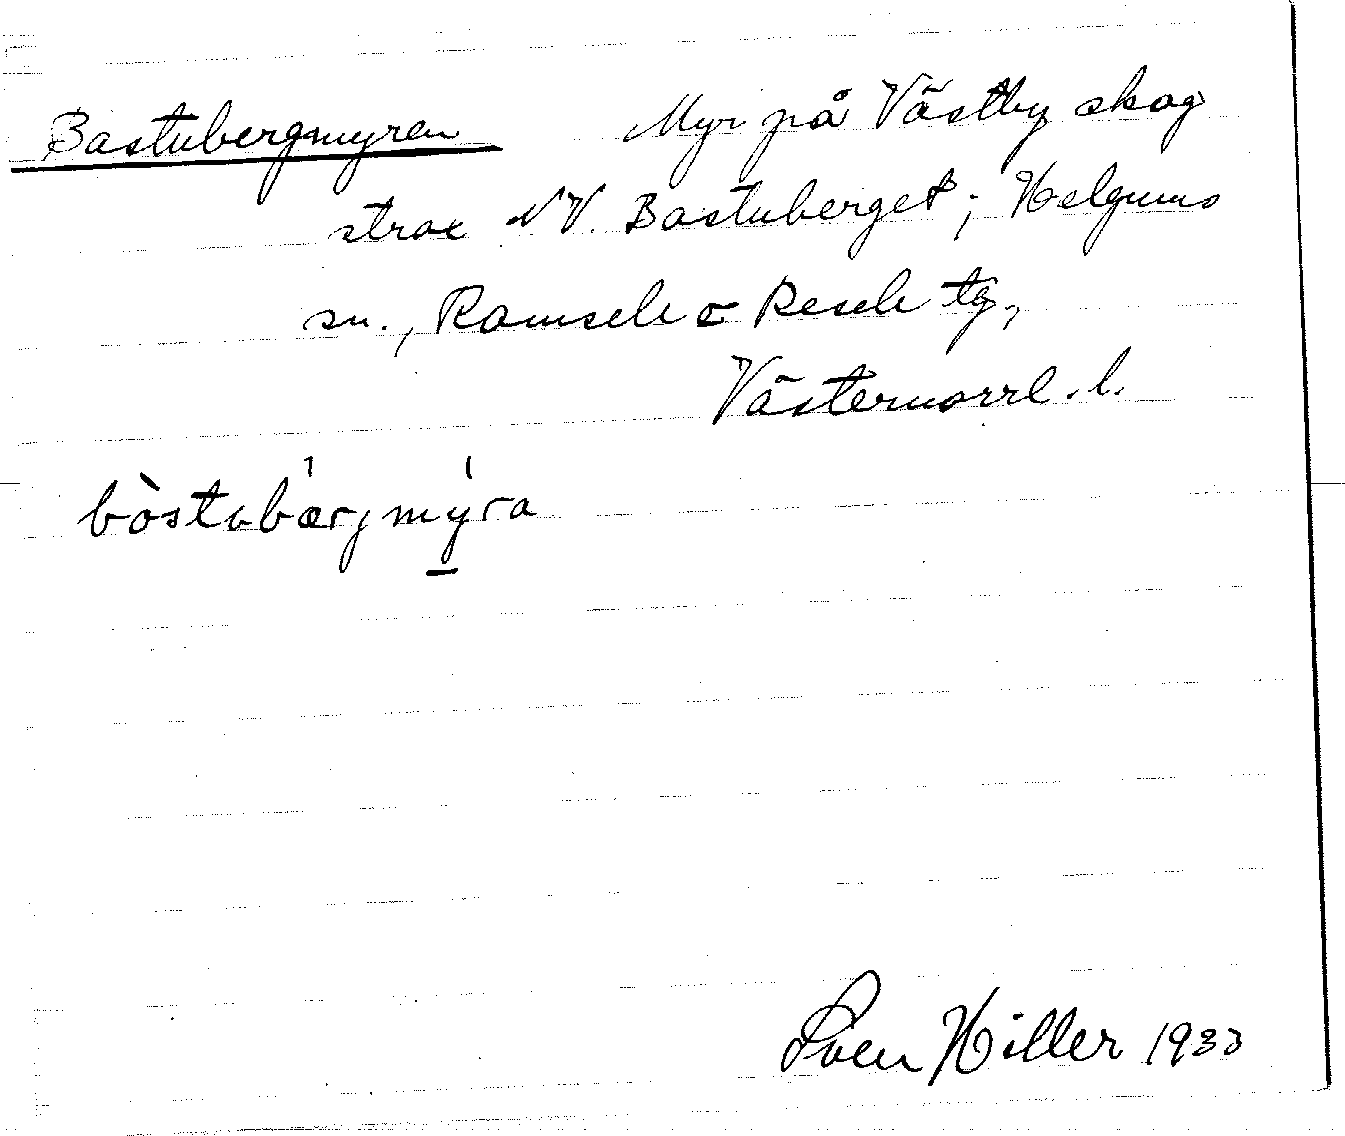 Bastubergmyren Myr på Västby skog
strax NV. Bastuberget; Helgums
sn., Ramsele o Resele tg.,
Västernorrl. l.
bòstubærjmýra
Sven Hiller 1933